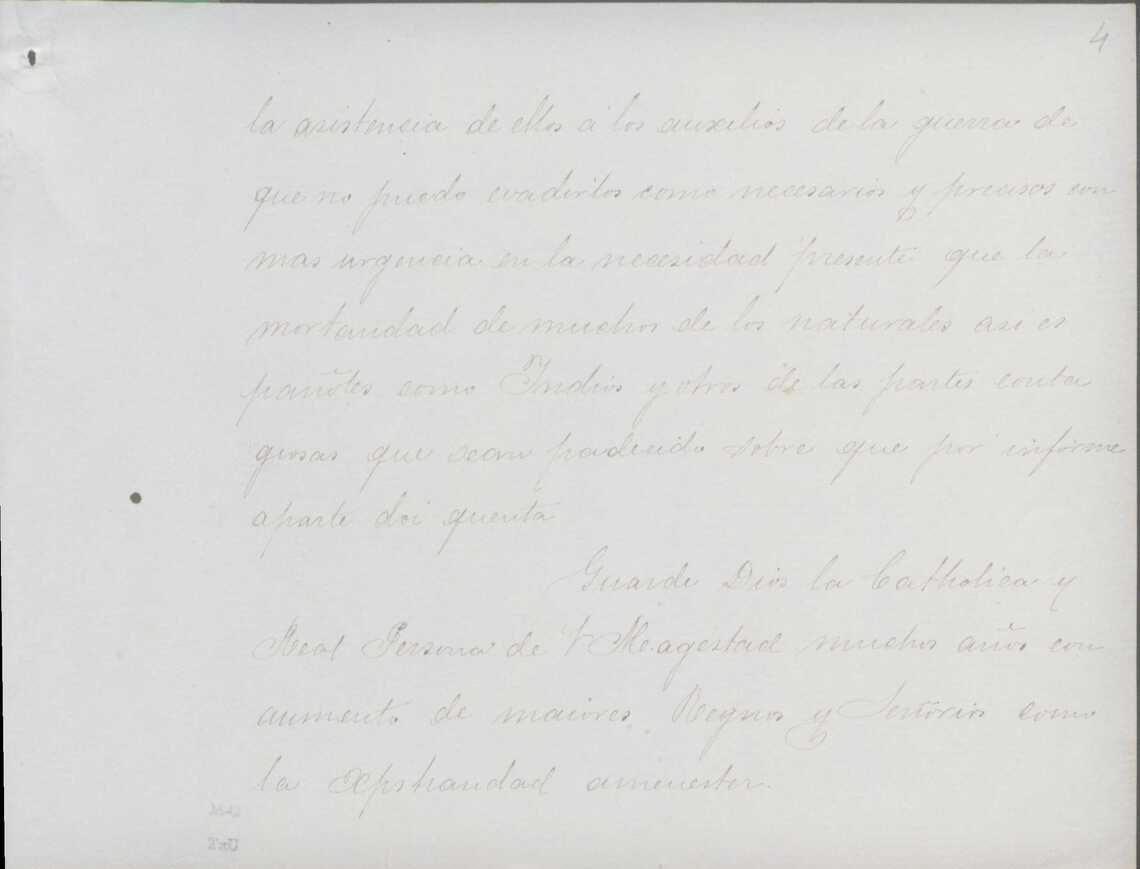 4
la asistencia de ellos a los auxilios de la guerra de
que no puedo evadirlos como necesarios y precisos con
mas urgencia en la necesidad presente que la
mortandad de muchos de los naturales asi es
pañoles como Indios y otros de las partes conta
giosas que sean padecido sobre que por informe
aparte doi quenta
Guarde Dios la Catholica y
Real Persona de V Magestad muchos años con
aumento de maiores Regnos y Señorios como
la Xpstiandad amenester.